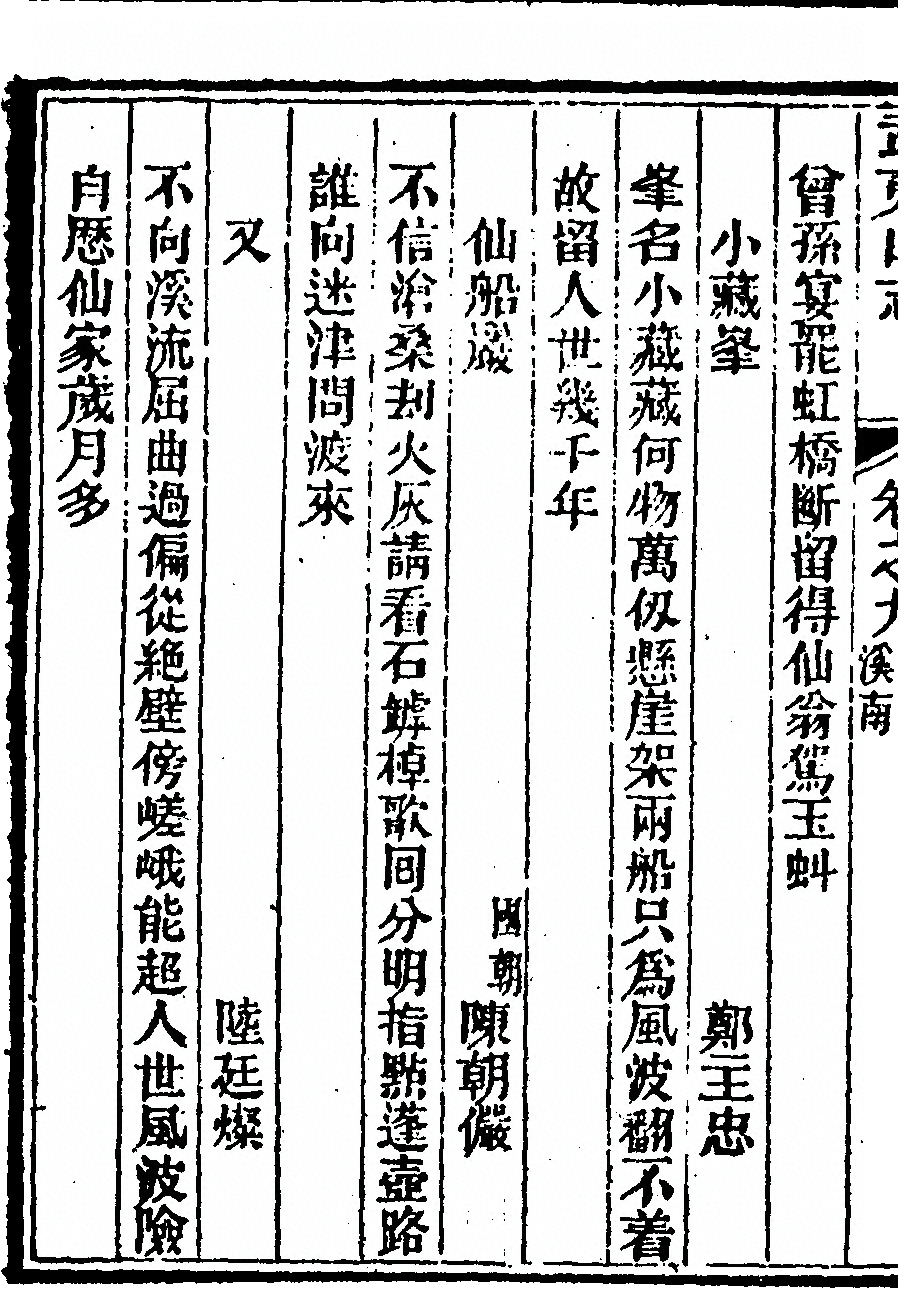 武夷山志 卷之九 溪南
曾孫宴罷虹橋斷留得仙翁駕玉蚪
小藏峯 鄭主忠
峯名小藏藏何物萬仭懸崖架兩船只爲風波翻不着
故留人世幾千年
仙船巖 國朝陳朝儼
不信滄桑刦火灰請看石罅棹歌回分明指點蓬壺路
誰向迷津問渡來
又 陸廷燦
不向溪流屈曲過偏從絶壁傍嵯峨能超人世風波險
自歷仙家歲月多